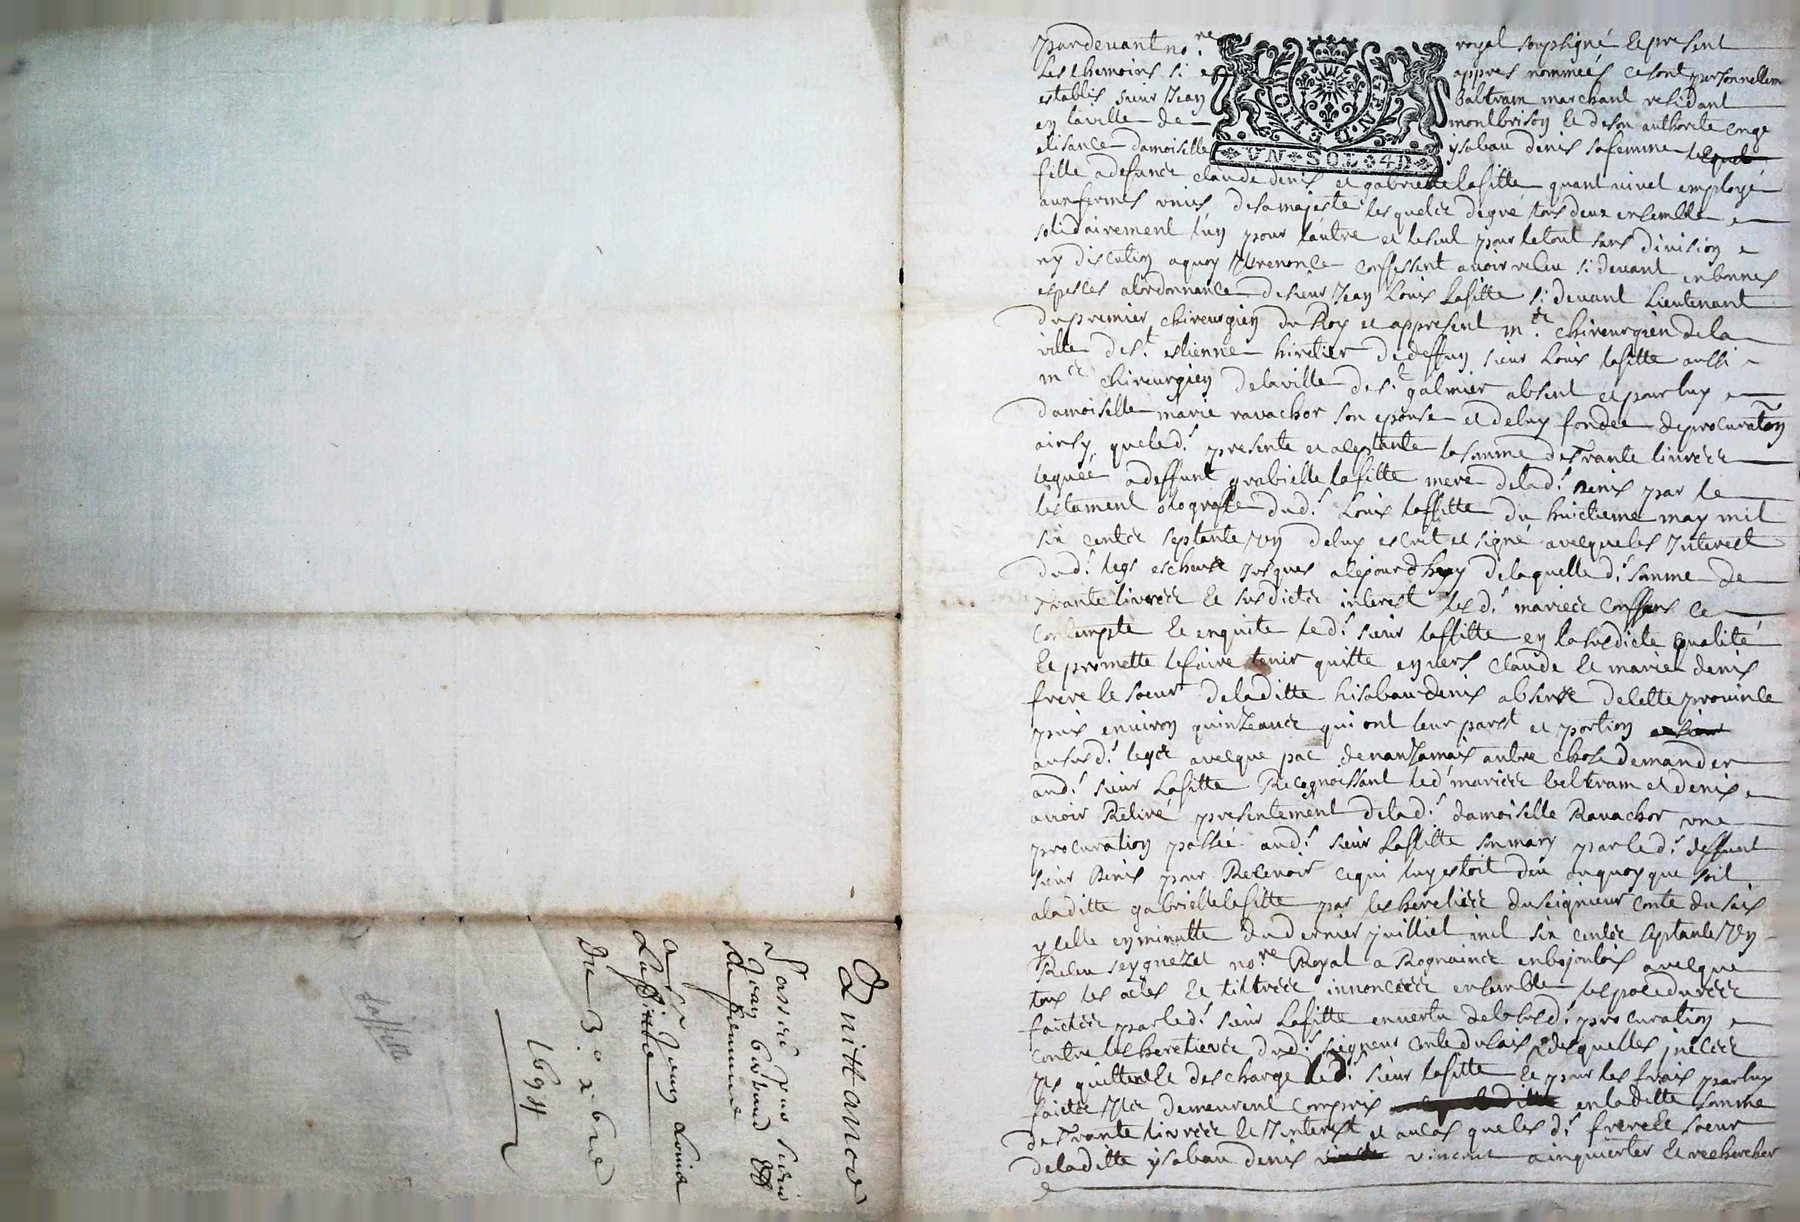 Quittance
passée par sieur
Jean bertrand et
sa femme
a sr Jean Louis
Laffitte
Du 3e xbre
1694
laffitte
pardevant nore royal soubsigné et present
les themoins si appres nommées ce sont personnellem
establis sieur Jean baltram marchant residant
en la ville de montbrison et de son authorite conge
et lisance damoiselle ysabau denis sa femme
VN SOL 4D
fille a defuncts claude denis et gabrielle lafitte quant vivet employé
aux fermes unies de sa majesté lesquelcs de gré tous deux ensemble
solidairement l'un pour l'autre et le seul pour le tout sans division
ny discution a quoy renonce confessent avoir receu si devant en bonnes
especes a l'ordonnance de sieur Jean Louis Lafitte si devant Lieutenant
du premier chirurgien du Roy et appresent mtre chirurgien de la
ville de st estienne hiretier de deffun sieur Louis lafitte aussi
mtre chirurgien de la ville de st galmier absent et pour luy
damoiselle marie ravachor son epouse et de luy fondée de procuration
ainsy que led. presente et aceptante la somme de trante livrees
leguée a deffunt grabielle lafitte mere de lad. denis par le
testament olografe dud. Louis laffitte du huictieme may mil
six centcs septante un de luy escrit et signé avecque les Interest
dud. legs escheus Jusques a lejourdhuy de laquelle d. somme de
trante livrees et susdictes interest les d. mariees confessans ce
contempte et en quite led. sieur laffitte en la susdicte qualité
et promette le faire tenir quitte envers claude et marie denis
frere et soeur de laditte hisabau denis absens de cette province
puis environ quinze ances qui ont leur parst et portion
au susd. legcs avecque pac de n'an Jamais autre chose demander
aud. sieur Lafitte Recognoissant led mariees beltram et denis
avoir Retiré presentement de lad. damoiselle Ravachor une
procuration passée aud. sieur Laffitte son mary par led. deffunt
sieur denis pour Recevoir ce qui luy estoit deu ou quoy que soit
a laditte gabrielle lafitte par les heretiees du seigneur conte du sais
ycelle en minutte du dernier juilliet mil six centcs septante un
Receu seyguezet nore Royal a Rognaince en bojoulois avecque
tous les actes et tiltrees innoncees ensemble les procedurees
faictes par led. sieur Lafitte en vertu de la susd. procuration
contre les heretieres dud. seigneur conte du sais desquelles piecees
Ils quittent et descharge led. sieur lafitte et pour les frais par luy
faictes Ils demeurent compris en laditte somme
de trante livrees et Interest et au cas que les d. frere et soeur
de laditte ysabau denis vincent a inquierter et rechercher